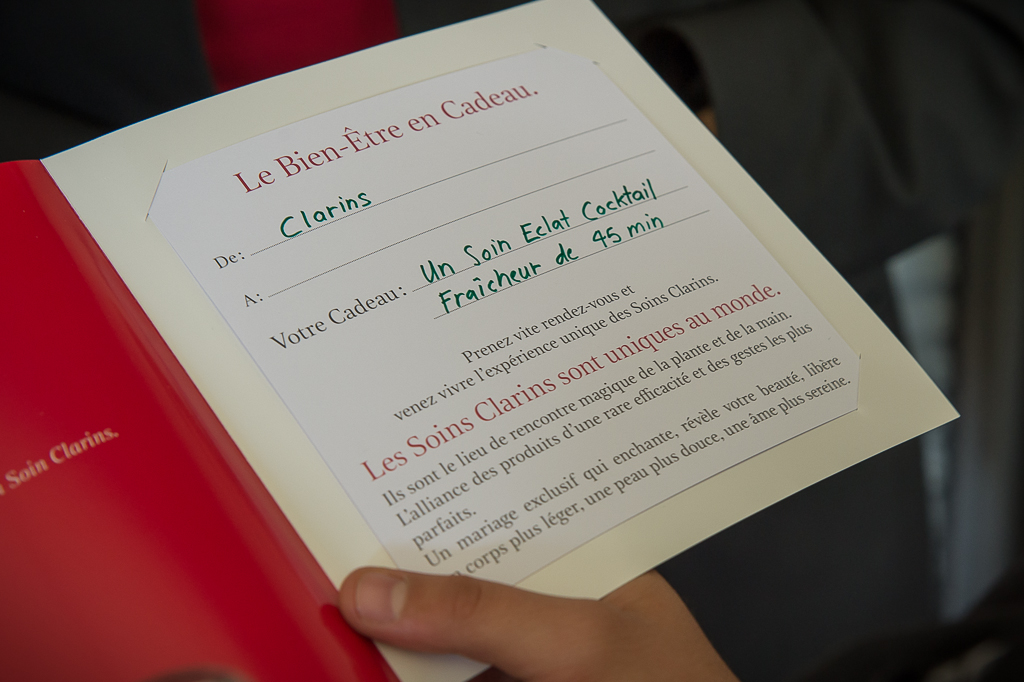 Le Bien-Être en Cadeau.
De: Clarins
A:
Votre Cadeau: Un Soin Eclat Cocktail
Fraîcheur de 45 min
Prenez vite rendez-vous et
venez vivre l'expérience unique des Soins Clarins.
Les Soins Clarins sont uniques au monde.
Ils sont le lieu de rencontre magique de la plante et de la main.
L'alliance des produits d'une rare efficacité et des gestes les plus
parfaits.
Un mariage exclusif qui enchante, révèle votre beauté, libère
corps plus léger, une peau plus douce, une âme plus sereine.
Soin Clarins.